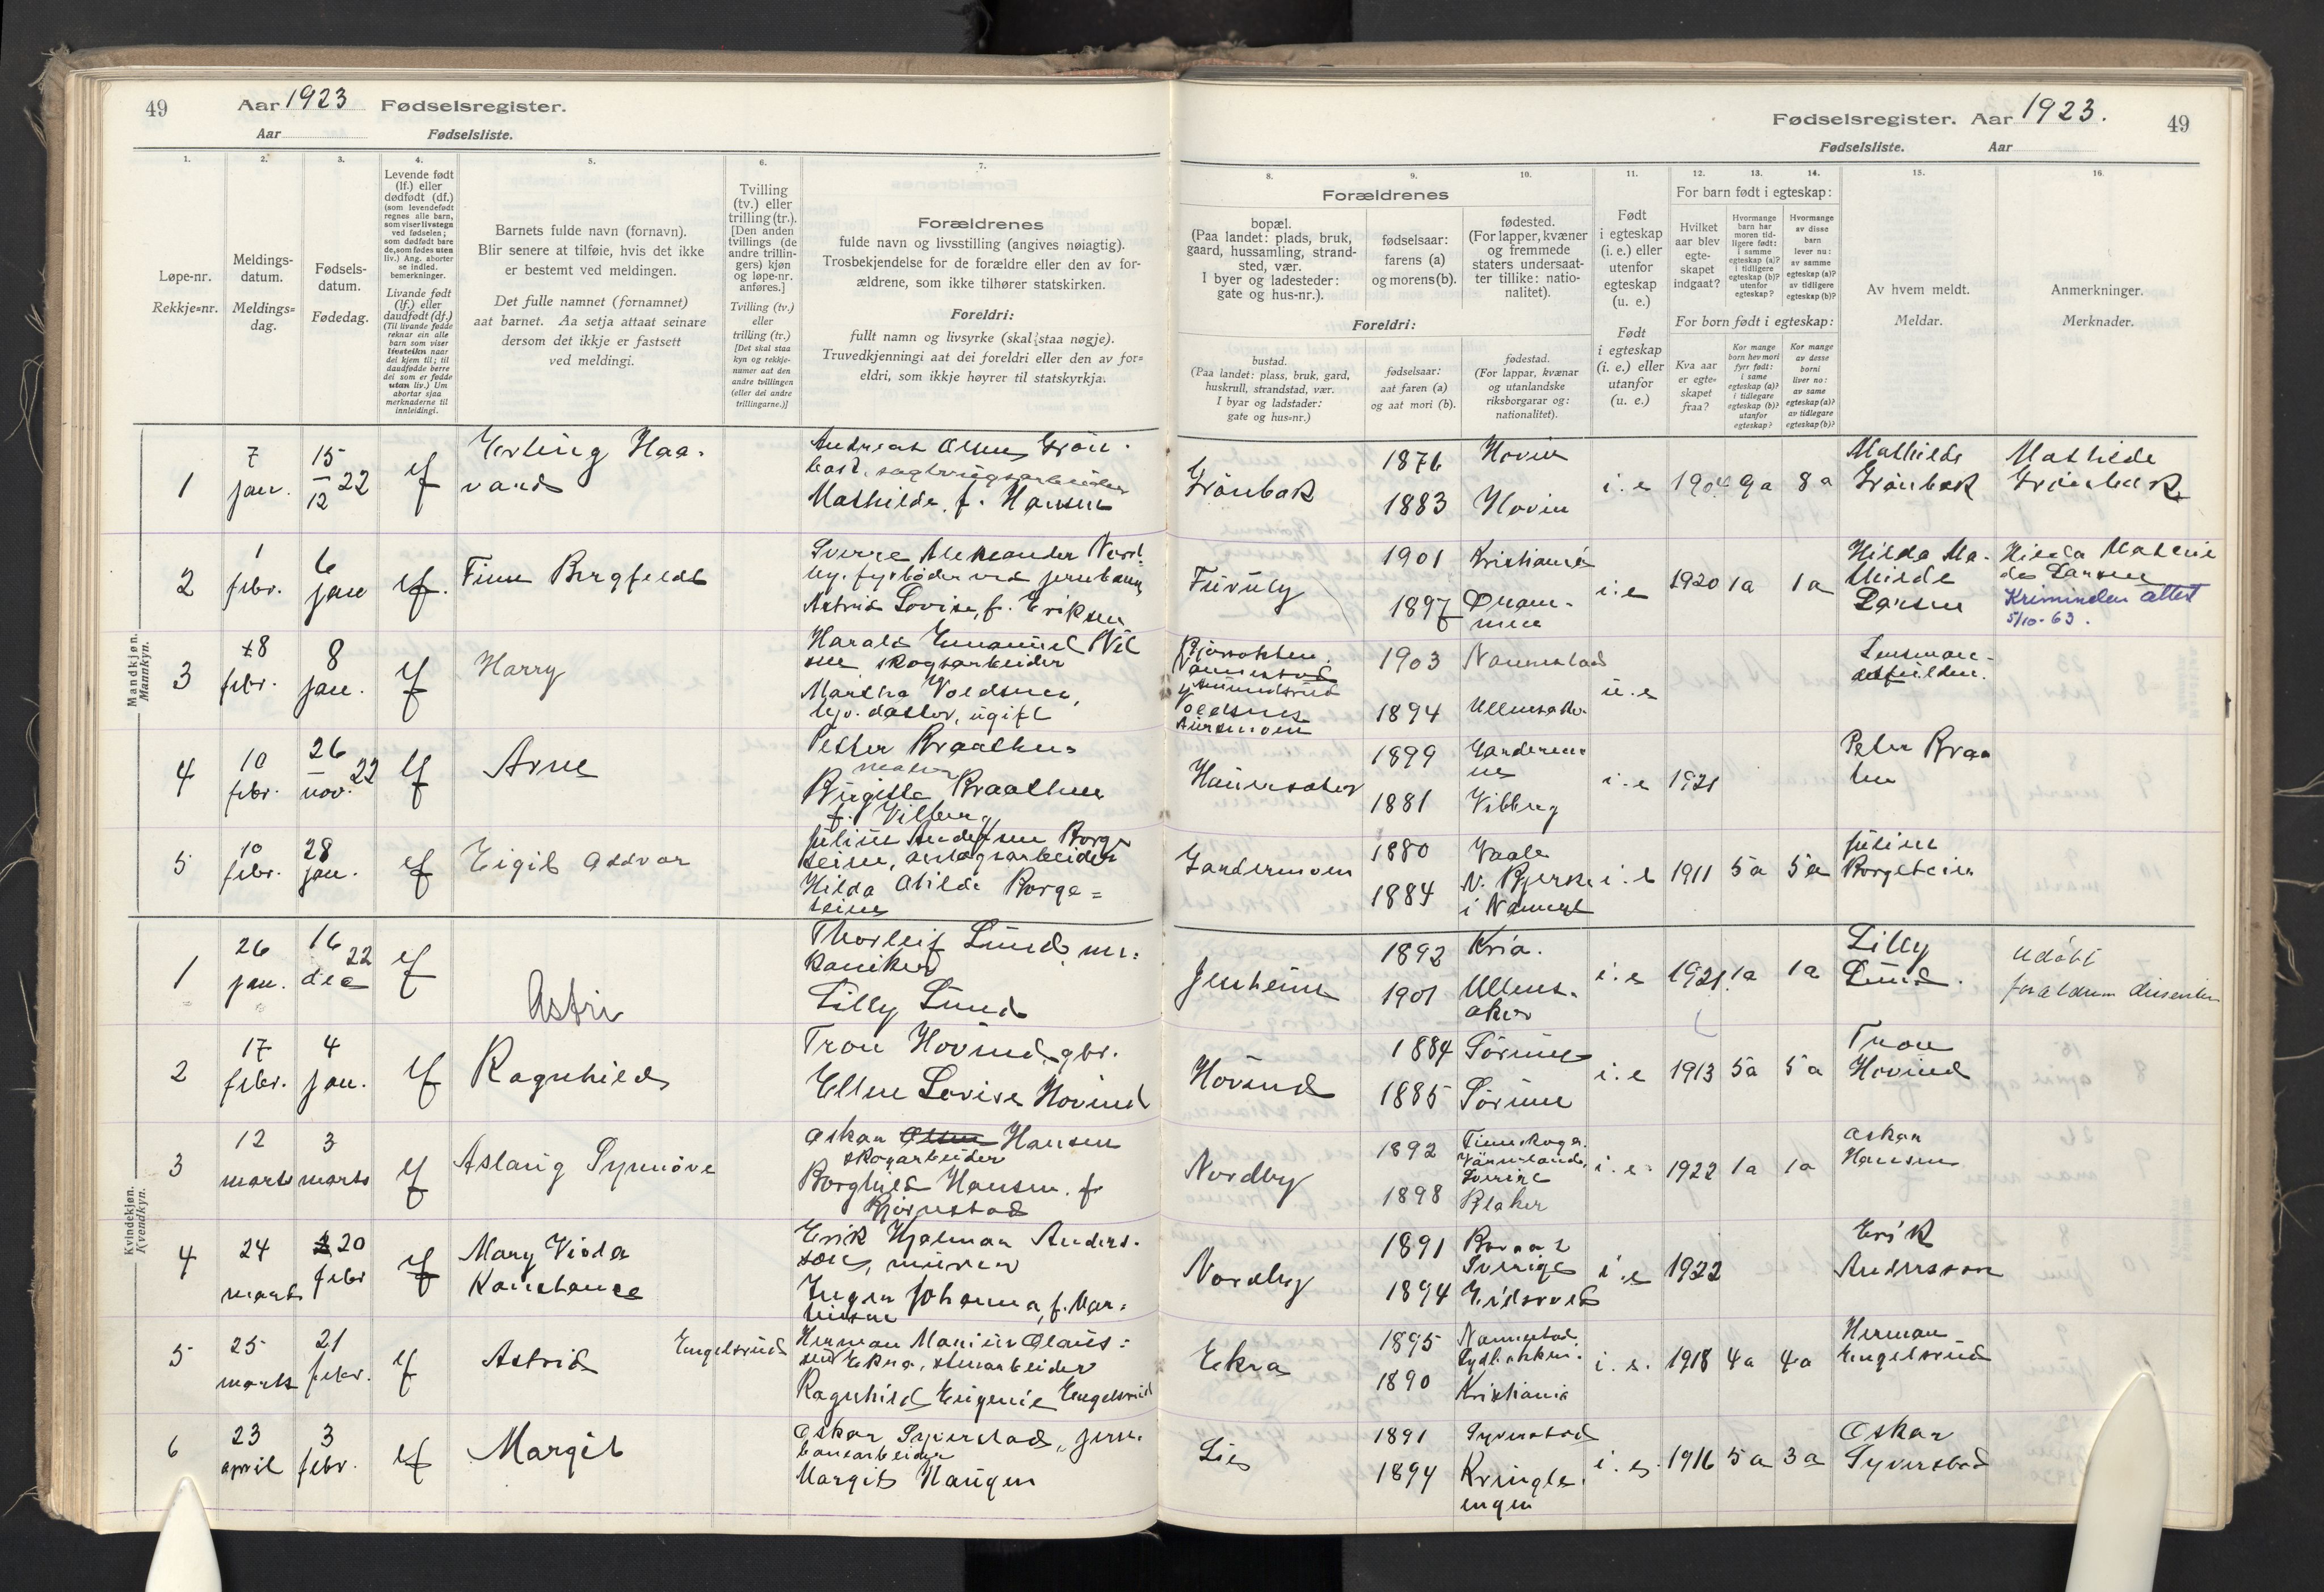 49
Aar 1923 Fødselsregister.
Aar Fødselsliste.
Fødselsregister. Aar 1923.
49
Fødselsliste. Aar
1.
Løpe-nr.
Rekkje=nr.
2.
Meldings-
datum.
Meldings=
dag.
3.
Fødsels-
datum.
Fødedag.
4.
Levende født
(lf.) eller
dødfødt (df.)
(som levendefødt
regnes alle barn,
som viser livstegn
ved fødselen;
som dødfødt bare
de, som fødes uten
liv.) Ang. aborter
se indled.
bemerkninger.
Livande født
(lf.) eller
daudfødt (df.)
(Til livande fødde
reknar ein alle
barn som viser
livsteikn naar
dei kjem til; til
daudfødde berre
dei som er fødde
utan liv.) Um
abortar sjaa
merknaderne til
innleidingi.
5.
Barnets fulde navn (fornavn).
Blir senere at tilføie, hvis det ikke
er bestemt ved meldingen.
Det fulle namnet (fornamnet)
aat barnet. Aa setja attaat seinare
dersom det ikkje er fastsett
ved meldingi.
6.
Tvilling
(tv.) eller
trilling (tr.).
[Den anden
tvillings (de
andre trillin-
gers) kjøn
og løpe-nr.
anføres.]
Tvilling (tv.)
eller
trilling (tr.)
[Det skal staa
kyn og rekkje-
numer aat den
andre tvillingen
(eller dei andre
trillingarne.)]
7.
Forældrenes
fulde navn og livsstilling (angives nøiagtig).
Trosbekjendelse for de forældre eller den av for-
ældrene, som ikke tilhører statskirken.
Foreldri:
fullt namn og livsyrke (skal staa nøgje).
Truvedkjenningi aat dei foreldri eller den av for=
eldri, som ikkje høyrer til statskyrkja.
8.
Forældrenes
bopæl.
(Paa landet: plads, bruk,
gaard, hussamling, strand-
sted, vær.
I byer og ladesteder:
gate og hus-nr.).
Foreldri:
bustad.
(Paa landet: plass, bruk, gard,
huskrull, strandstad, vær.
I byar og ladstader:
gate og hus=nr.)
9.
fødselsaar:
farens (a)
og morens (b).
fødselsaar:
aat faren (a)
og aat mori (b).
10.
fødested.
(For lapper, kvæner
og fremmede
staters undersaat-
ter tillike: natio-
nalitet).
fødestad.
(For lappar, kvænar
og utanlandske
riksborgarar og:
nationalitet).
11.
Født
i egteskap
(i. e.) eller
utenfor
egteskap
(u. e.)
Født
i egteskap
(i. e.) eller
utanfor
egteskap
(u. e.)
For barn født i egteskap:
12.
Hvilket
aar blev
egte-
skapet
indgaat?
13.
Hvormange
barn har
moren tid-
ligere født:
i samme
egteskap (a)?
i tidligere
egteskap (b)?
utenfor
egteskap?
14.
Hvormange
av disse
barn
lever nu:
av samme
egteskap (a)?
av tidligere
egteskap (b)?
For born født i egteskap:
Kva aar
er egte-
skapet
fraa?
Kor mange
born hev mori
fyrr født:
i same
egteskap (a)?
i tidlegare
egteskap (b)?
utanfor
egteskap?
Kor mange
av desse
borni
liver no:
av same
egteskap (a)?
av tidlegare
egteskap (b)?
15.
Av hvem meldt.
Meldar.
16.
Anmerkninger.
Merknader.
Mandkjøn.
Mannkyn.
1
7
jan.
15
12 22
lf
Erling Haa-
vard
Andreas Olsen Grøn-
bak. sagbrugsarbeider
Mathilde f. Hansen
Grønbak
1876
1883
Hovin
Hovin
i. e 1904 9a 8a
Mathilde
Grønbak
Mathilde
Grønbak
2
1
febr.
6
jan
lf.
Finn Bergfeldt
Sverre Aleksander Nord-
by. fyrbøder ved jernbanen
Astrid Lovise, f. Eriksen
Furuly
1901
1897
Kristiania
Dram-
men
i. e 1920 1a 1a
Hilda Ma-
thilde
Larsen
Larsen
attest
5/10-63.
3
8
febr.
8
jan.
lf
Harry
Harald Emanuel Nil
sen skogsarbeider
Martha Voldsnes,
tjv. datter, ugift
1903
1894
Nannestad
Ullensaker
u. e
Lensman-
4
10
febr.
26
nov. 22
lf
Arne
Petter Braathen
maler
Birgitte Braathen
f. Vilberg
Hauersæter
1899
1881
Gardermo
en
Vilberg
i. e 1921
Peter Braa
ten
5
10
febr.
28
jan.
lf
Eigil Oddvar
Julius Andersen Borge
teien, anlægsarbeider
Hilda Otilde Borge=
teien
Gardermoen
1880
1884
Vaale
N. Bjerke
i Nannest
i. e 1911 5a 5a
Julius
Borgeteien
Kvindekjøn.
Kvendkyn.
1
26
jan.
16 22
dec
lf
Astri
Thorleif Lund me=
kaniker
Lilly Lund
Jessheim
1892
1901
Kria.
Ullens-
aker
i. e 1921 1a 1a
Lilly
Lund.
udøbt
forældrene dissenter
2
17
febr.
4
jan.
lf
Ragnhild
Tron Hovind, gbr.
Ellen Lovise Hovind
Hovind
1884
1885
Sørum
Sørum
i. e 1913 5a 5a
Tron
Hovind
3
12
marts
3
marts
lf
Aslaug Synnøve
Oskar Olsen Hansen
skogarbeider
Borghild Hansen. f.
Bjørnstad
Nordby
1892
1898
Finnskoga.
Värmland,
Sverige
Blaker
i. e. 1922 1a 1a
Oskar
Hansen
4
24
marts
20
febr
lf
Mary Viola
Konstance
Erik Hjalmar Anders-
son, murer
Inga Johanna, f. Mar=
tinsen
Nordby
1891
1894
Boraas
Sverige
Eidsvold
i. e 1922
Erik
Andersson
5
25
marts
21
febr.
lf
Astrid
Engelsrud
Herman Marius Olaus=
sen Ekra, stenarbeider
Ragnhild Eugenie Engelsrud
Ekra
1895
1890
Nannestad
Kristiania
i. e. 1918 4a 4a
Herman
Engelsrud
6
23
april
3
febr.
lf
Margit
Oskar Syverstad, jern-
banearbeider
Margit Haugen
Lie
1891
1894
Syverstad
Kringle-
engen
i. e. 1916 5a 3a
Oskar
Syverstad